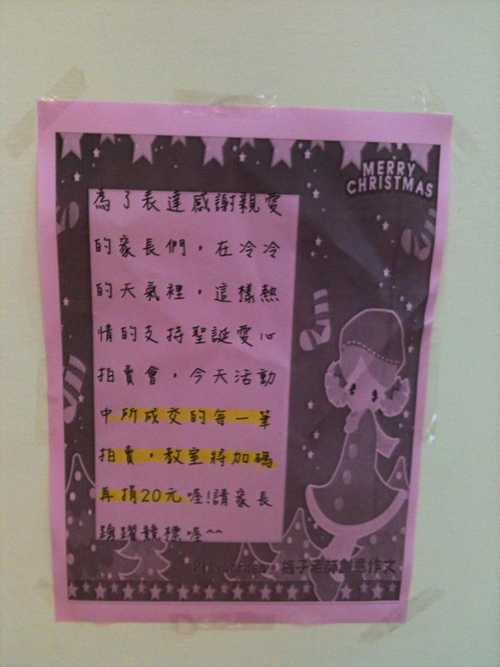 MERRY
CHRISTMAS
為了表達感謝親愛
的家長們，在冷冷
的天氣裡，這樣熱
情的支持聖誕愛心
拍賣會，今天活動
中所成交的每一筆
拍賣，教室將加碼
再捐20元喔!請家長
踴躍競標喔^^
老師創意作文